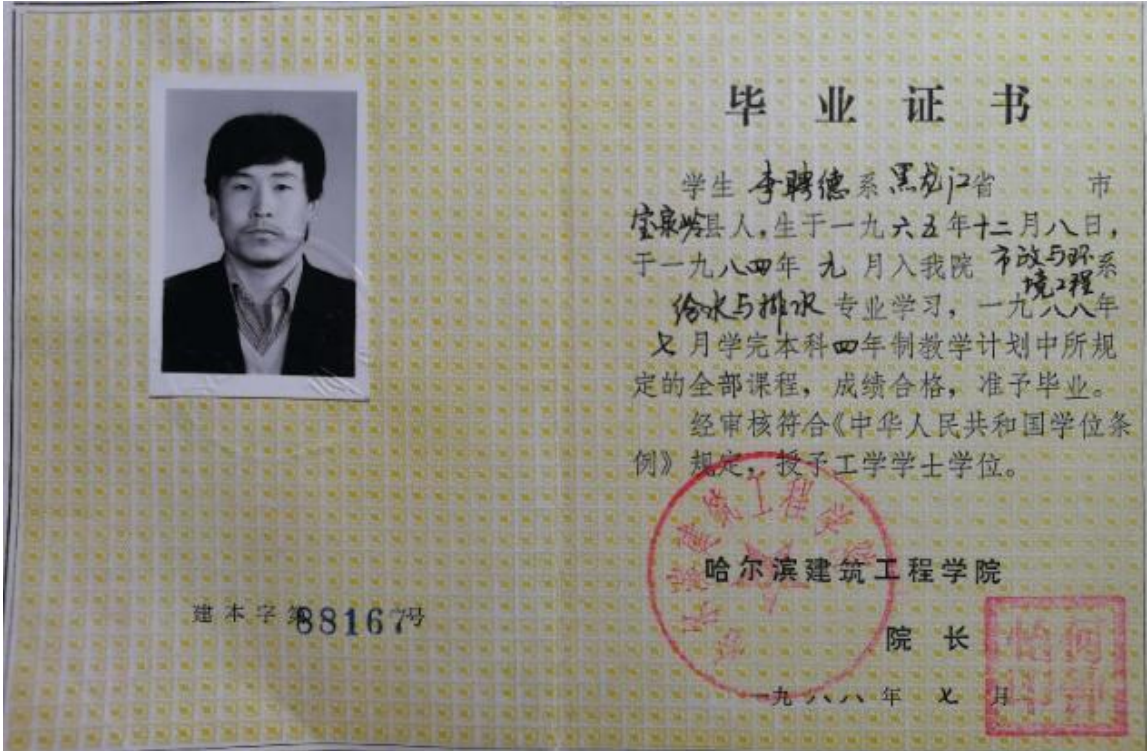 毕业证书
学生 李聘德 系 黑龙江省 市
宝泉岭县人,生于一九六五年十二月八日,
于一九八四年 九 月入我院 市政与环境工程 系
给水与排水 专业学习,一九八八年
七 月学完本科四年制教学计划中所规
定的全部课程,成绩合格,准予毕业。
经审核符合《中华人民共和国学位条
例》规定,授予工学学士学位。
哈尔滨建筑工程学院
哈尔滨建筑工程学院
院 长
一九八八 年 七 月
建本字第88167号